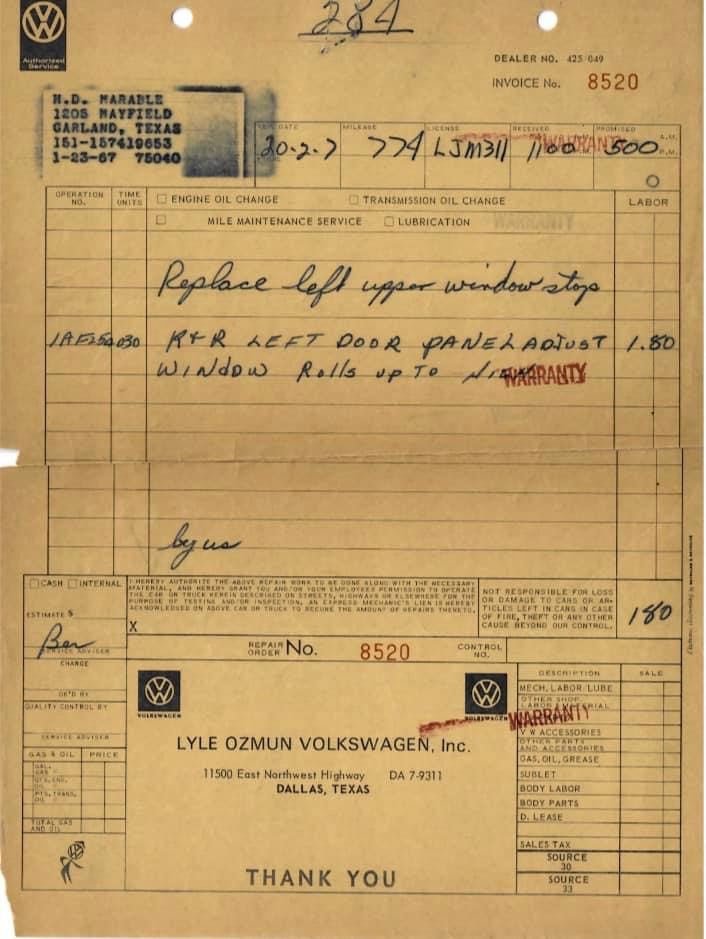 284
Authorized
Service
DEALER NO. 425 049
INVOICE No. 8520
H.D. MARABLE
1205 MAYFIELD
GARLAND, TEXAS
151-157419653
1-23-67 75040
DATE MILEAGE LICENSE RECEIVED PROMISED
20-2-7 774 LJM311 1100 A.M. 500 A.M. P.M.
WARRANTY
OPERATION NO. TIME UNITS ENGINE OIL CHANGE TRANSMISSION OIL CHANGE LABOR
MILE MAINTENANCE SERVICE LUBRICATION WARRANTY
Replace left upper window stop
1AF250 030 R+R LEFT DOOR PANEL ADJUST 1.80
WINDOW Rolls up TO
WARRANTY
by us
CASH INTERNAL
I HEREBY AUTHORIZE THE ABOVE REPAIR WORK TO BE DONE ALONG WITH THE NECESSARY
MATERIAL, AND HEREBY GRANT YOU AND/OR YOUR EMPLOYEES PERMISSION TO OPERATE
THE CAR OR TRUCK HEREIN DESCRIBED ON STREETS, HIGHWAYS OR ELSEWHERE FOR THE
PURPOSE OF TESTING AND/OR INSPECTION. AN EXPRESS MECHANIC'S LIEN IS HEREBY
ACKNOWLEDGED ON ABOVE CAR OR TRUCK TO SECURE THE AMOUNT OF REPAIRS THERETO.
X
NOT RESPONSIBLE FOR LOSS
OR DAMAGE TO CARS OR AR-
TICLES LEFT IN CARS IN CASE
OF FIRE, THEFT OR ANY OTHER
CAUSE BEYOND OUR CONTROL.
180
ESTIMATE $
Ben
SERVICE ADVISER
CHANGE
OK'D BY
QUALITY CONTROL BY
SERVICE ADVISER
REPAIR ORDER No. 8520 CONTROL NO.
VOLKSWAGEN VOLKSWAGEN
LYLE OZMUN VOLKSWAGEN, Inc.
11500 East Northwest Highway DA 7-9311
DALLAS, TEXAS
THANK YOU
GAS & OIL PRICE
GAL. GAS
QTS. ENG. OIL
PTS. TRANS. OIL
TOTAL GAS
AND OIL
DESCRIPTION SALE
MECH. LABOR/LUBE
OTHER SHOP
LABOR MATERIAL
WARRANTY
V W ACCESSORIES
OTHER PARTS
AND ACCESSORIES
GAS, OIL, GREASE
SUBLET
BODY LABOR
BODY PARTS
D. LEASE
SALES TAX
SOURCE
30
SOURCE
33